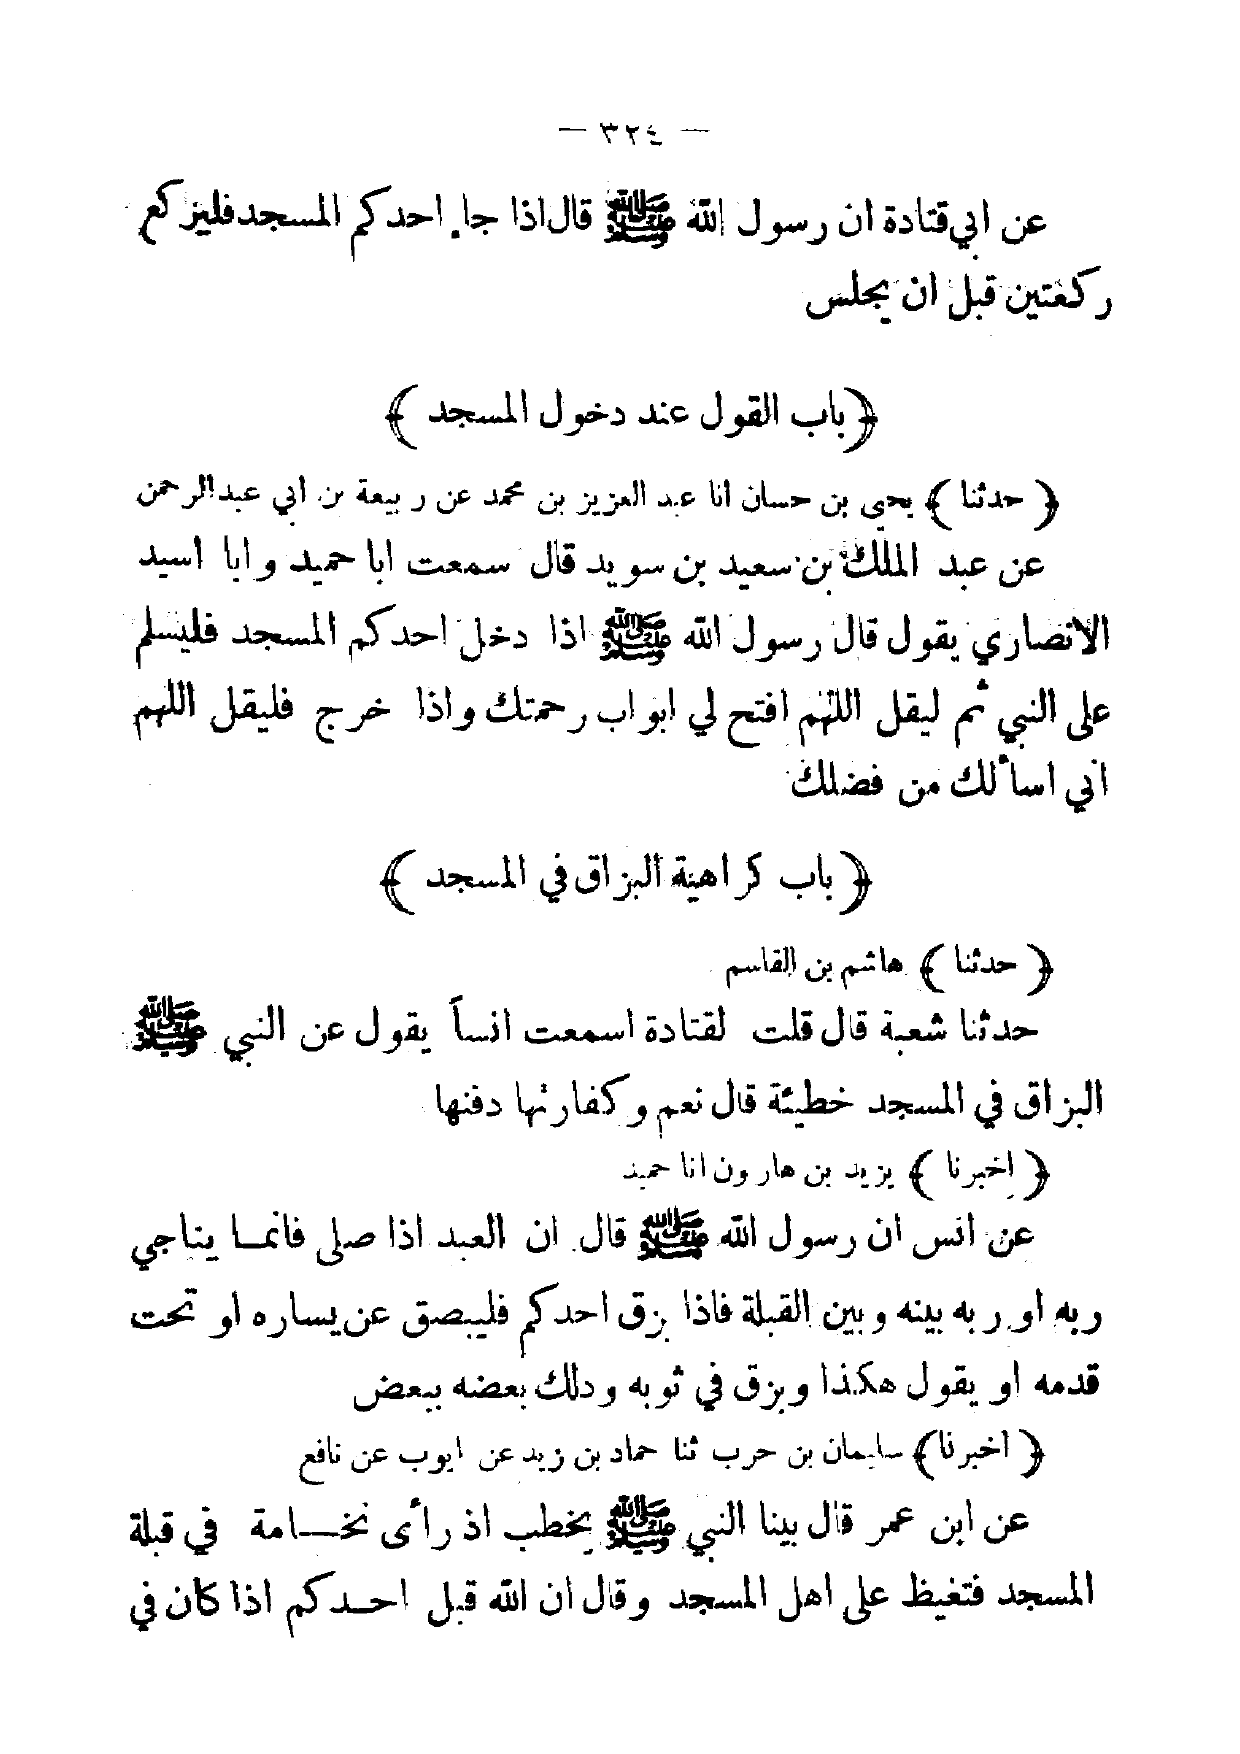 — ٣٢٤ —
عن ابي قتادة ان رسول الله ﷺ قال اذا جاء احدكم المسجد فليركع
ركعتين قبل ان يجلس
﴿ باب القول عند دخول المسجد ﴾
﴿ حدثنا ﴾ يحيى بن حسان انا عبد العزيز بن محمد عن ربيعة بن ابي عبدالرحمن
عن عبد الملك بن سعيد بن سويد قال سمعت ابا حميد وابا اسيد
الانصاري يقول قال رسول الله ﷺ اذا دخل احدكم المسجد فليسلم
على النبي ثم ليقل اللهم افتح لي ابواب رحمتك واذا خرج فليقل اللهم
اني اسألك من فضلك
﴿ باب كراهية البزاق في المسجد ﴾
﴿ حدثنا ﴾ هاشم بن القاسم
حدثنا شعبة قال قلت لقتادة اسمعت انساً يقول عن النبي ﷺ
البزاق في المسجد خطيئة قال نعم وكفارتها دفنها
﴿ اخبرنا ﴾ يزيد بن هارون انا حميد
عن انس ان رسول الله ﷺ قال ان العبد اذا صلى فانمـا يناجي
ربه او ربه بينه وبين القبلة فاذا بزق احدكم فليبصق عن يساره او تحت
قدمه او يقول هكذا وبزق في ثوبه ودلك بعضه ببعض
﴿ اخبرنا ﴾ سليمان بن حرب ثنا حماد بن زيد عن ايوب عن نافع
عن ابن عمر قال بينا النبي ﷺ يخطب اذ رأى نخـامة في قبلة
المسجد فتغيظ على اهل المسجد وقال ان الله قبل احـدكم اذا كان في